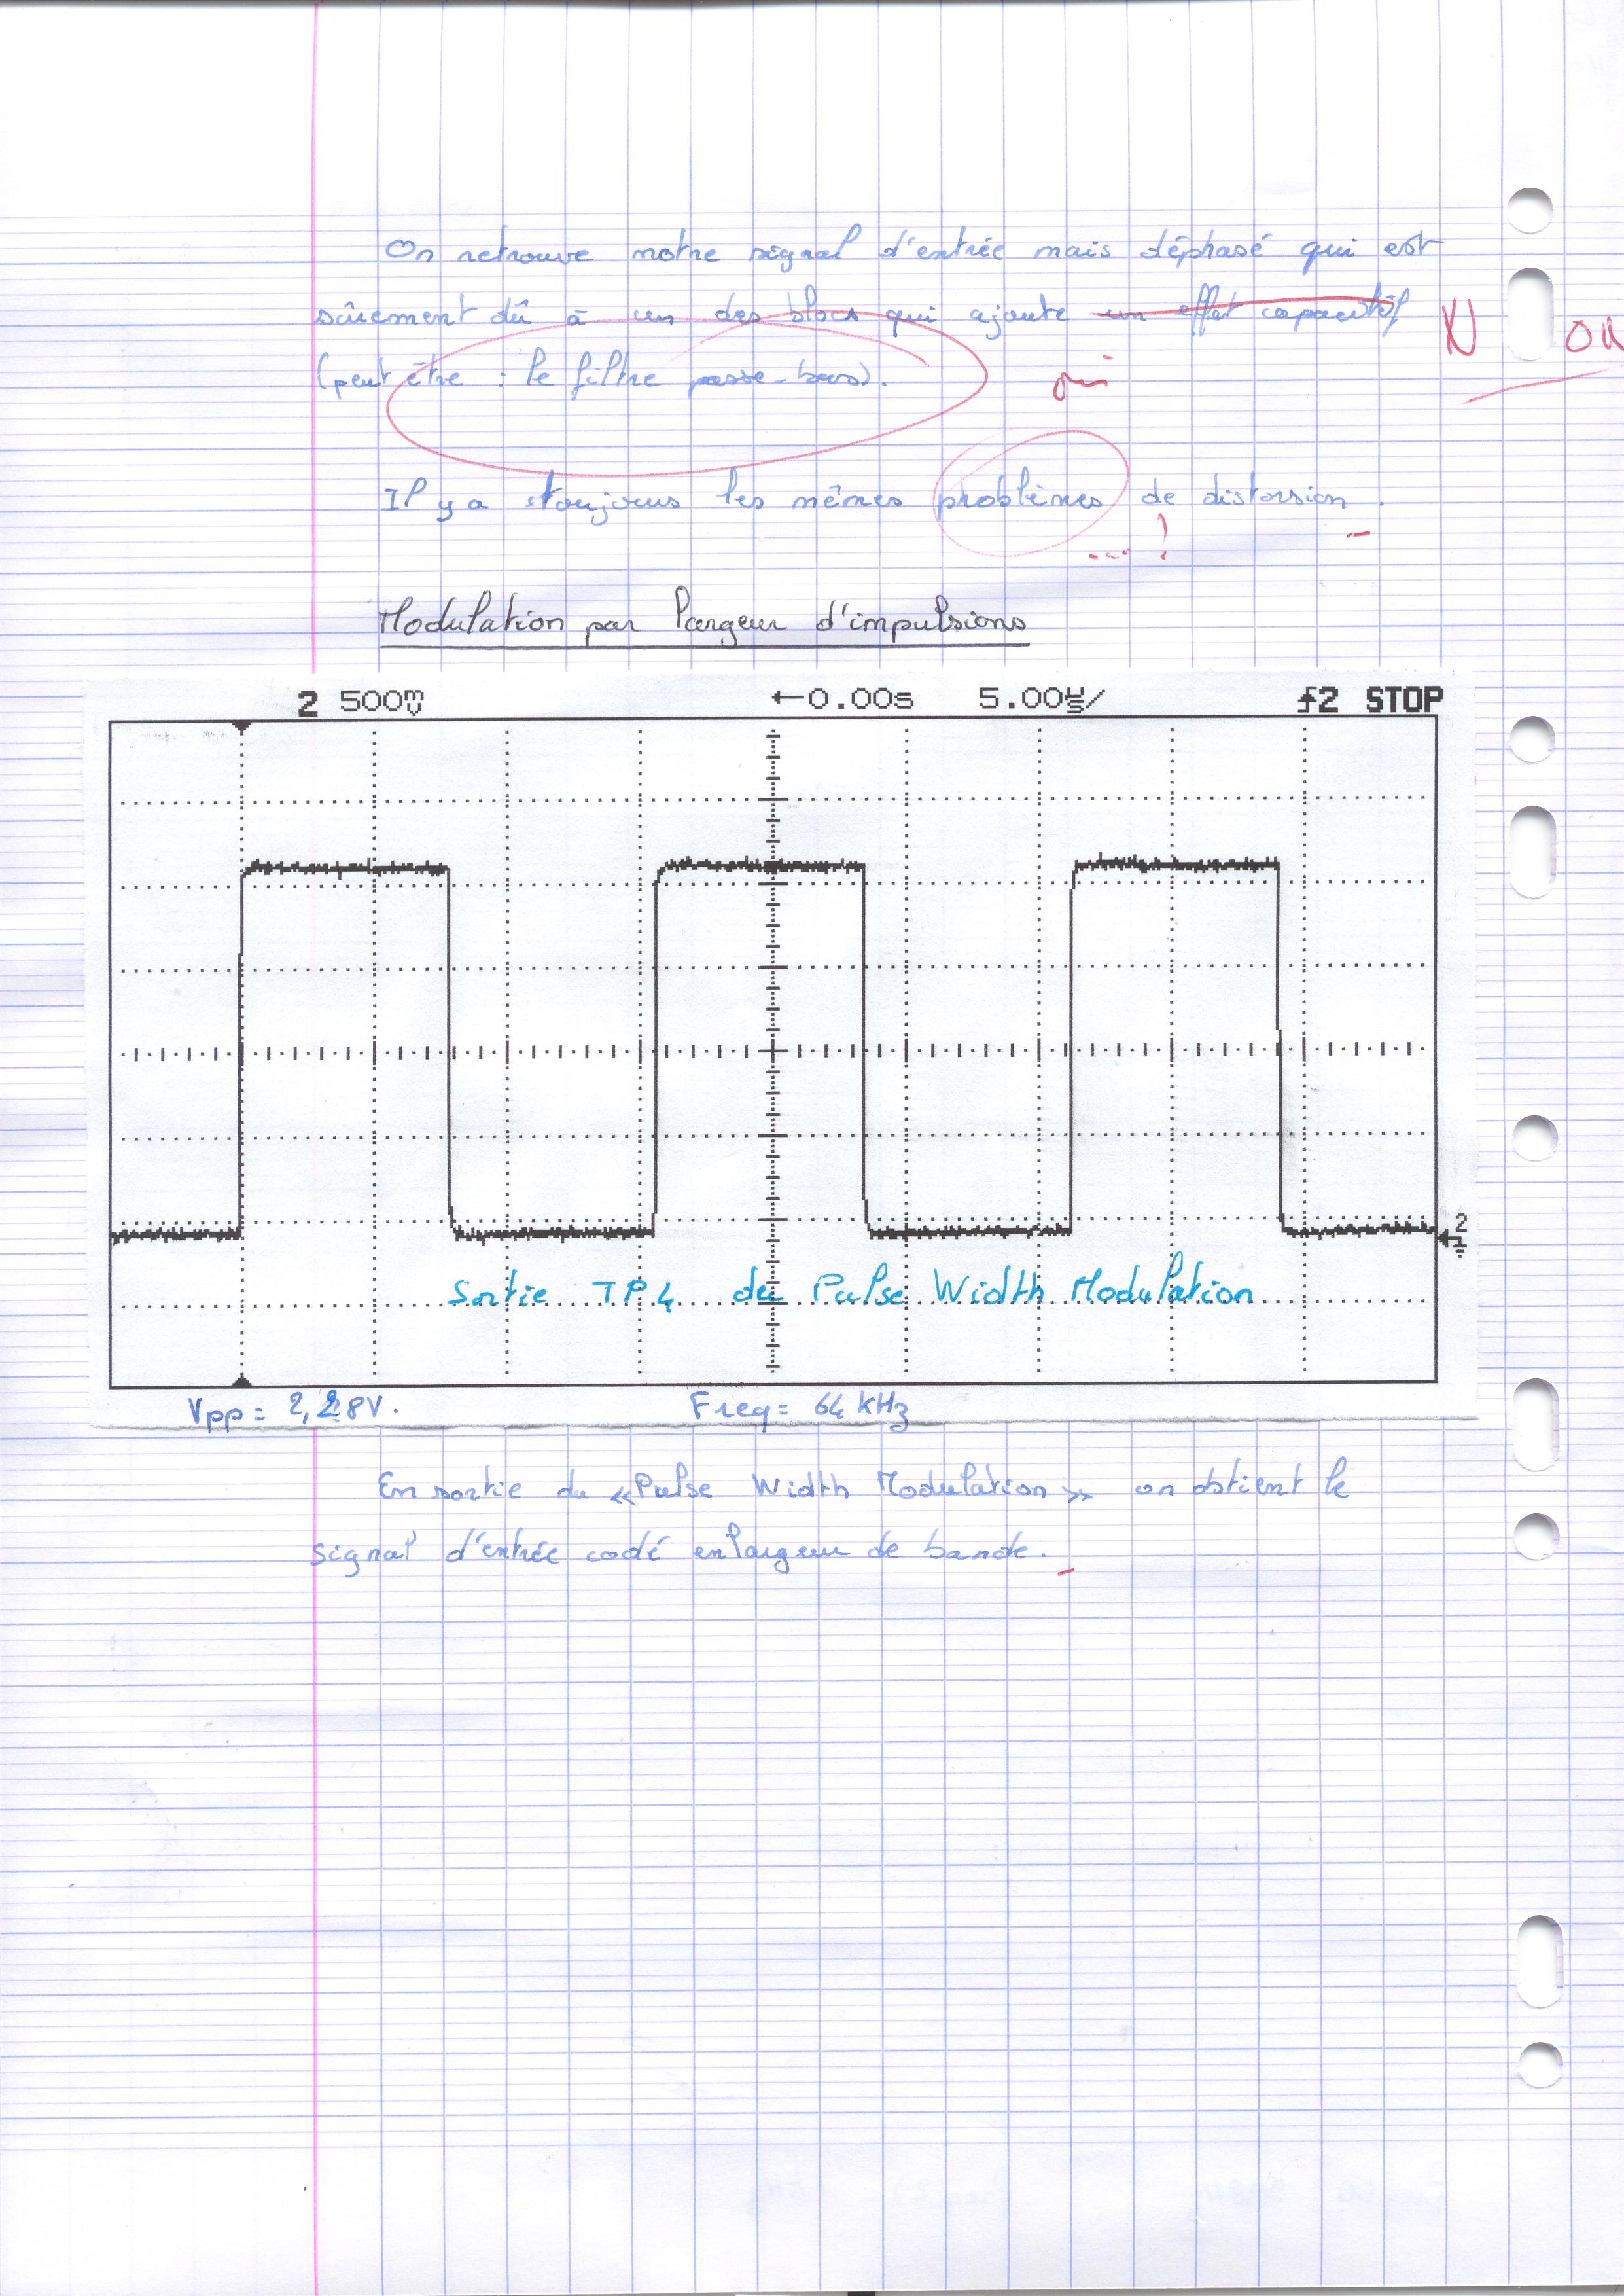 On retrouve notre signal d'entrée mais déphasé qui est
sûrement dû à un des blocs qui ajoute un effet capacitif
(peut être : le filtre passe-bas). oui
Il y a toujours les mêmes problèmes de distorsion .
... !
Modulation par largeur d'impulsions
2 500mV ←0.00s 5.00us/ ƒ2 STOP
2
Sortie TP4 du Pulse Width Modulation
Vpp = 2,28V. Freq = 64 kHz
En sortie du «Pulse Width Modulation» on obtient le
signal d'entrée codé en largeur de bande.